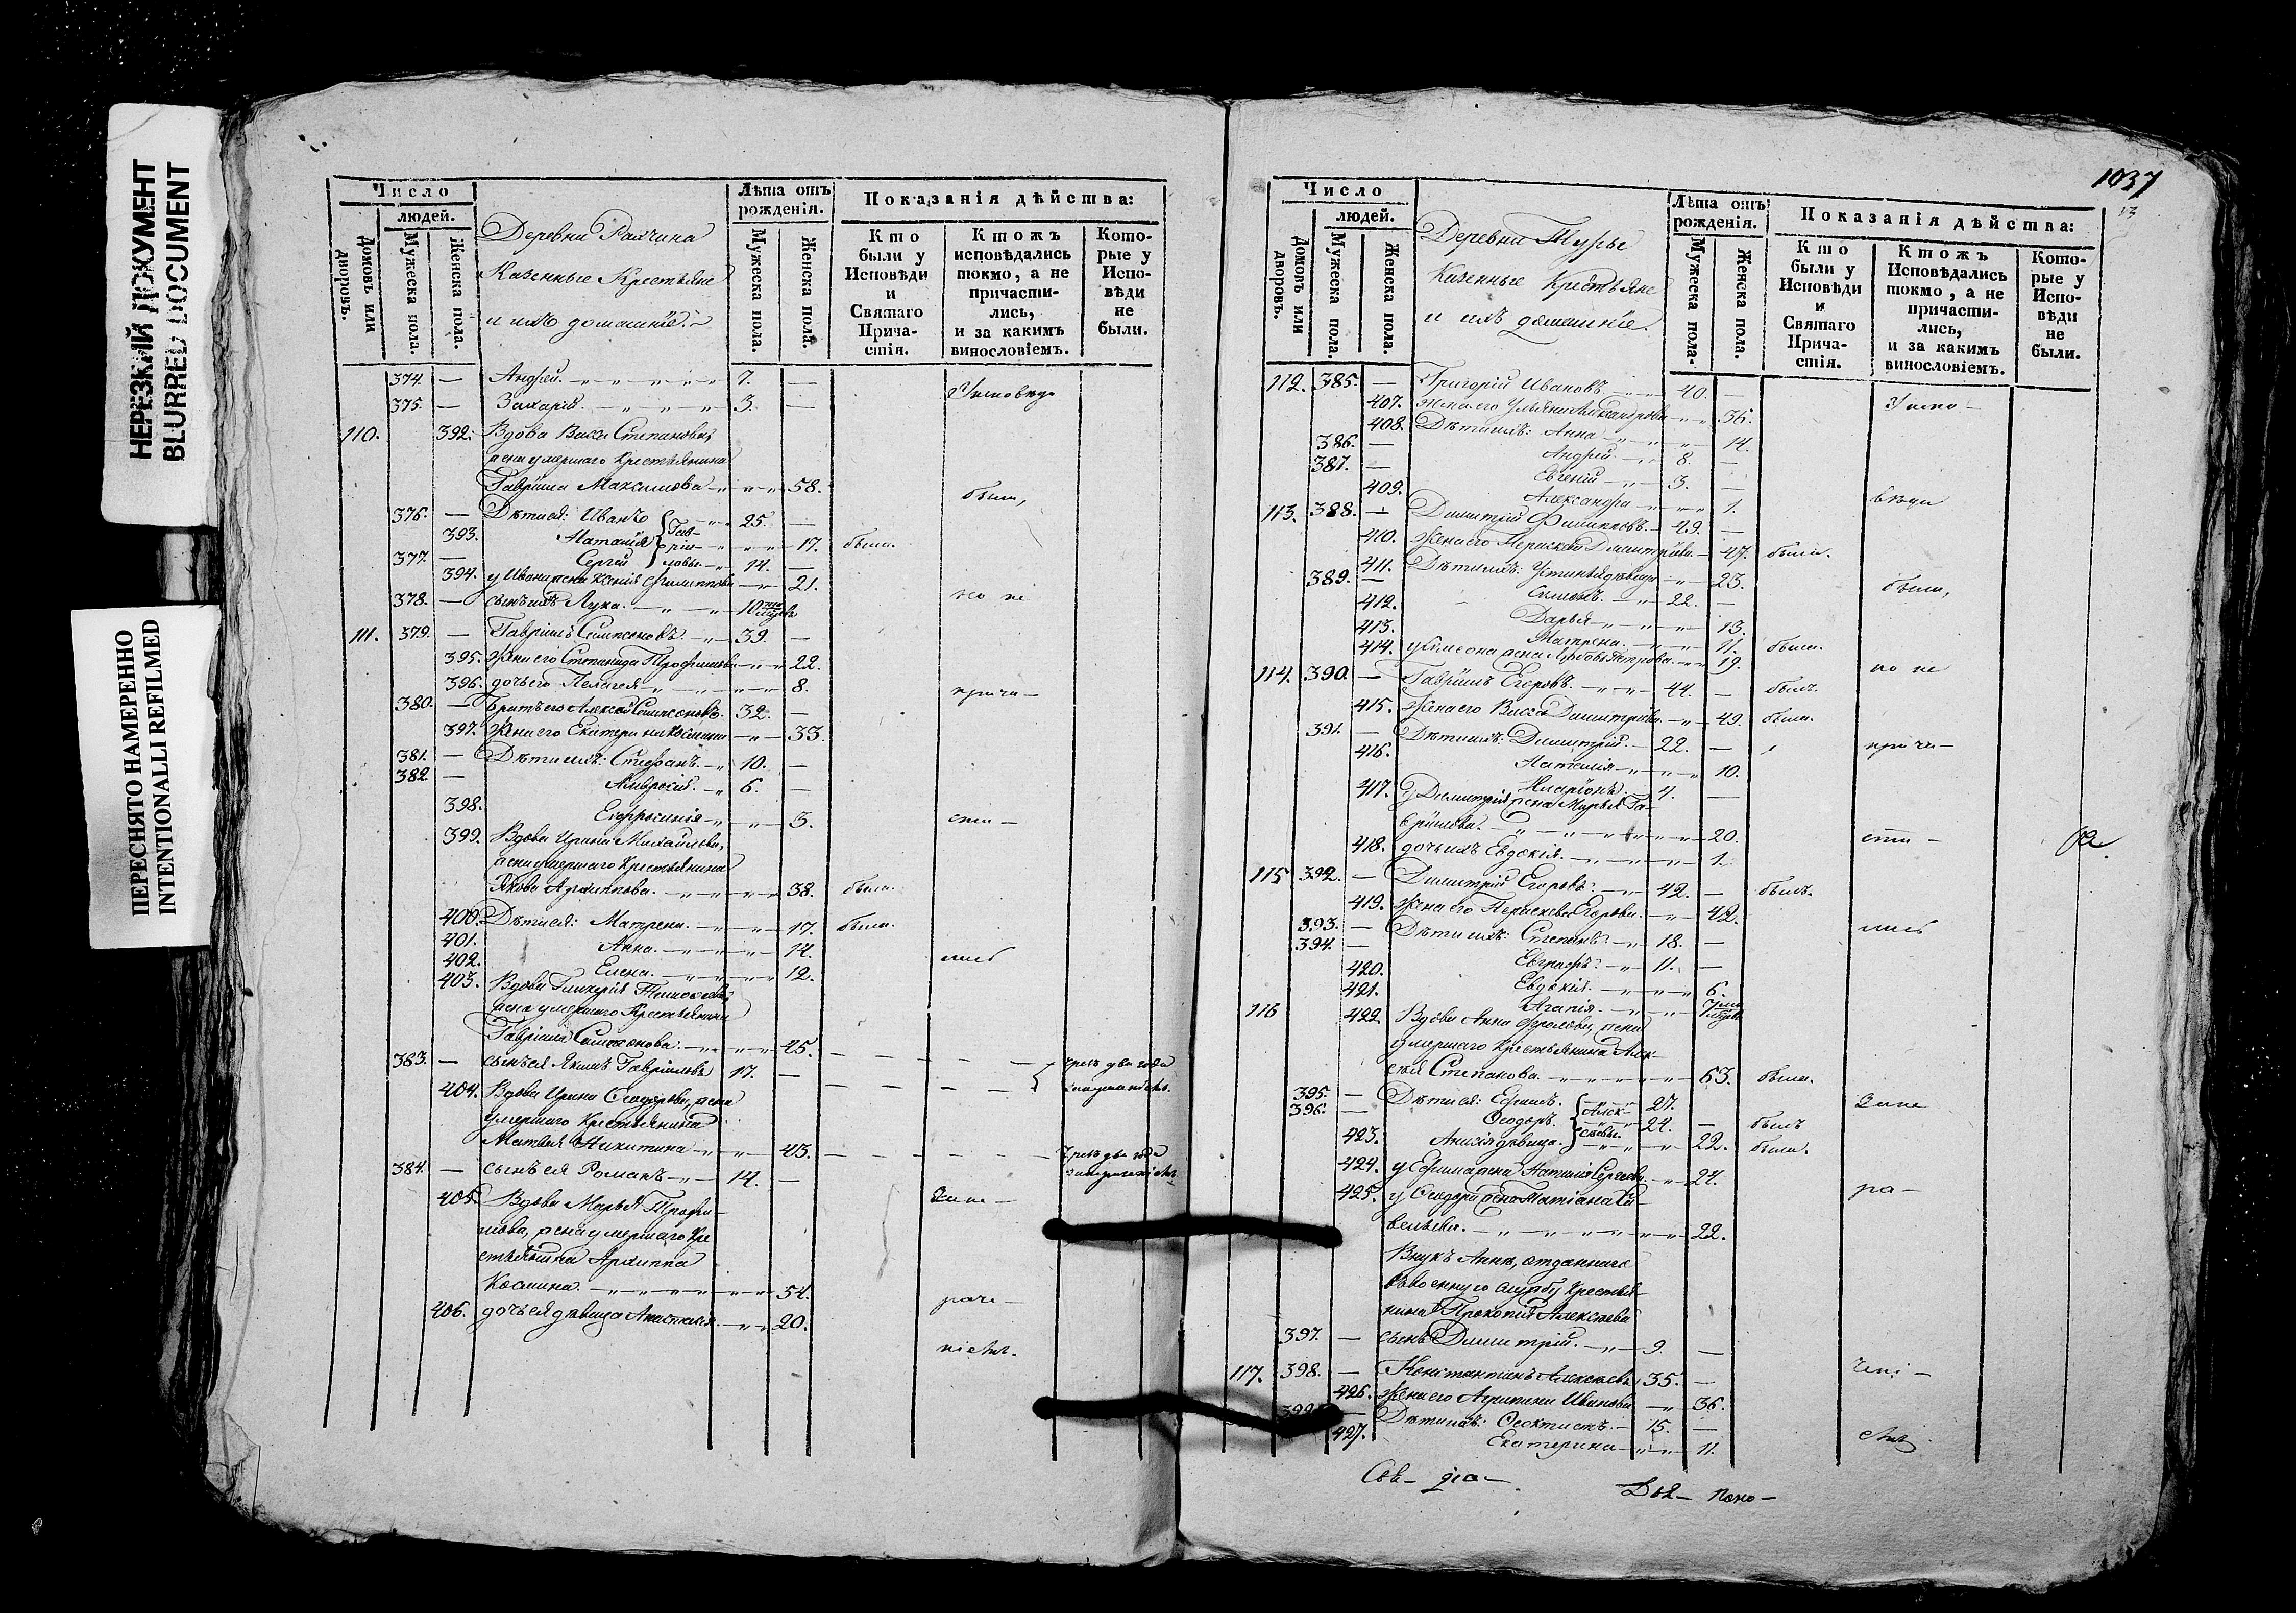 НЕРЕЗКИЙ ДОКУМЕНТ
BLURRED DOCUMENT
ПЕРЕСНЯТО НАМЕРЕННО
INTENTIONALLI REFILMED
Число
людей.
Домовъ или дворовъ.
Мужеска пола.
Женска пола.
Деревни
Казенные Крестьяне
и ихъ домашніе.
Лѣта отъ рожденія.
Мужеска пола.
Женска пола.
Показанія дѣйства:
Кто были у Исповѣди и Святаго Прича- стія.
Ктожъ исповѣдались токмо, а не причасти- лись, и за какимъ винословіемъ.
Кото- рые у Испо- вѣди не были.
374. — Андрей. 7. —
375. — Захарій. 3. —
110. 392. Вдова Васса Степанова,
жена умершаго крестьянина
Гавріила Максимова 58.
были,
376. — Дѣти ея: Иванъ 25. —
393. Наталія 17. была.
Гав- ріи- ловы
377. — Сергей 14. —
394. у Ивана жена Ксенія Филиппова 21.
но не
378. — сынъ ихъ Лука. 10
111. 379. — Гавріилъ Сампсоновъ 39. —
395. Жена его Степанида Трофимова 22.
396. дочь его Пелагея 8.
прича-
380. — Братъ его Алексей Сампсоновъ. 32. —
397. Жена его Екатерина 33.
381. — Дѣти ихъ: Стефанъ. 10. —
382. — Амвросій. 6. —
398. Евфросинія 3.
сти-
399. Вдова Ирина Михайлова,
жена умершаго Крестьянина
Якова Архиппова. 38. была.
400. Дѣти ея: Матрена. 17. была.
401. Анна. 14.
402. Елена. 12.
лись
403. Вдова Гликерія
жена умершаго Крестьянина
Гавріила Сампсонова. 45.
383. — сынъ ея Якимъ Гавріиловъ 17. —
чрезъ два года
404. Вдова Ирина Ѳеодорова, жена
умершаго Крестьянина
Матвея Никитина 43.
чрезъ два года
384. — сынъ ея Романъ 14. —
405. Вдова Марья Трофи-
мова, жена умершаго Кре
стьянина Архиппа
Космина. 54.
406. дочь ея дѣвица Анастасія 20.
1037
13
Число
людей.
Домовъ или дворовъ.
Мужеска пола.
Женска пола.
Деревни Турье
Казенные Крестьяне
и ихъ домашніе.
Лѣта отъ рожденія.
Мужеска пола.
Женска пола.
Показанія дѣйства:
Кто были у Исповѣди и Святаго Прича- стія.
Ктожъ Исповѣдались токмо, а не причасти- лись, и за какимъ винословіемъ.
Кото- рые у Испо- вѣди не были.
112. 385. — Григорій Ивановъ 40. —
407. жена его Ульяна Александрова 36.
408. Дѣти ихъ: Анна 14.
386. — Андрей 8. —
387. — Евгеній 3. —
409. Александра 1.
вѣди
113. 388. — Димитрій Филипповъ 49. —
410. Жена его Параскева Димитріева 47. была.
411. Дѣти ихъ: Устинья дѣвица 23.
389. — Симеонъ. 22. —
были,
412. Дарья 13.
413. Матрена. 11.
414. у Симеона жена Любовь Петрова. 19. была.
но не
114. 390. — Гавріилъ Егоровъ. 44. — былъ.
415. Жена его Васса Димитріева. 49. была.
391. — Дѣти ихъ: Димитрій. 22. —
прича-
416. Наталія 10.
Иларіонъ. 4. —
417. у Димитрія жена Марья Га-
вріилова. 20.
418. дочь ихъ Евдокія. 1.
сти-
115 392. — Димитрій Егоровъ. 42. — былъ.
419. жена его Параскева Егорова. 42.
лись
393. — Дѣти ихъ: Степанъ 18. —
394. — Евграфъ 11. —
420. Евдокія. 6.
421. Агапія.
116 422. Вдова Анна Фролова, жена
умершаго Крестьянина Алек-
сея Степанова. 63. была.
395. — Дѣти ея: Ефимъ. 27.
396. — Ѳеодоръ. 24. — былъ
Алек- сеевы.
423. Анисія дѣвица. 22. была.
424. у Ефима жена Наталія Сергеева 24.
425. у Ѳеодора жена Татіана Са-
вельева. 22.
ра-
Внукъ Анны, отданнаго
въ военную службу Крестья-
нина Прокопія Алексеева
397. — сынъ Димитрій. 9. —
117. 398. — Константинъ Алексеевъ 35. —
426. Жена его Агрипина Иванова 36.
399. — Дѣти ихъ: Ѳеоктистъ 15. —
427. Екатерина 11.